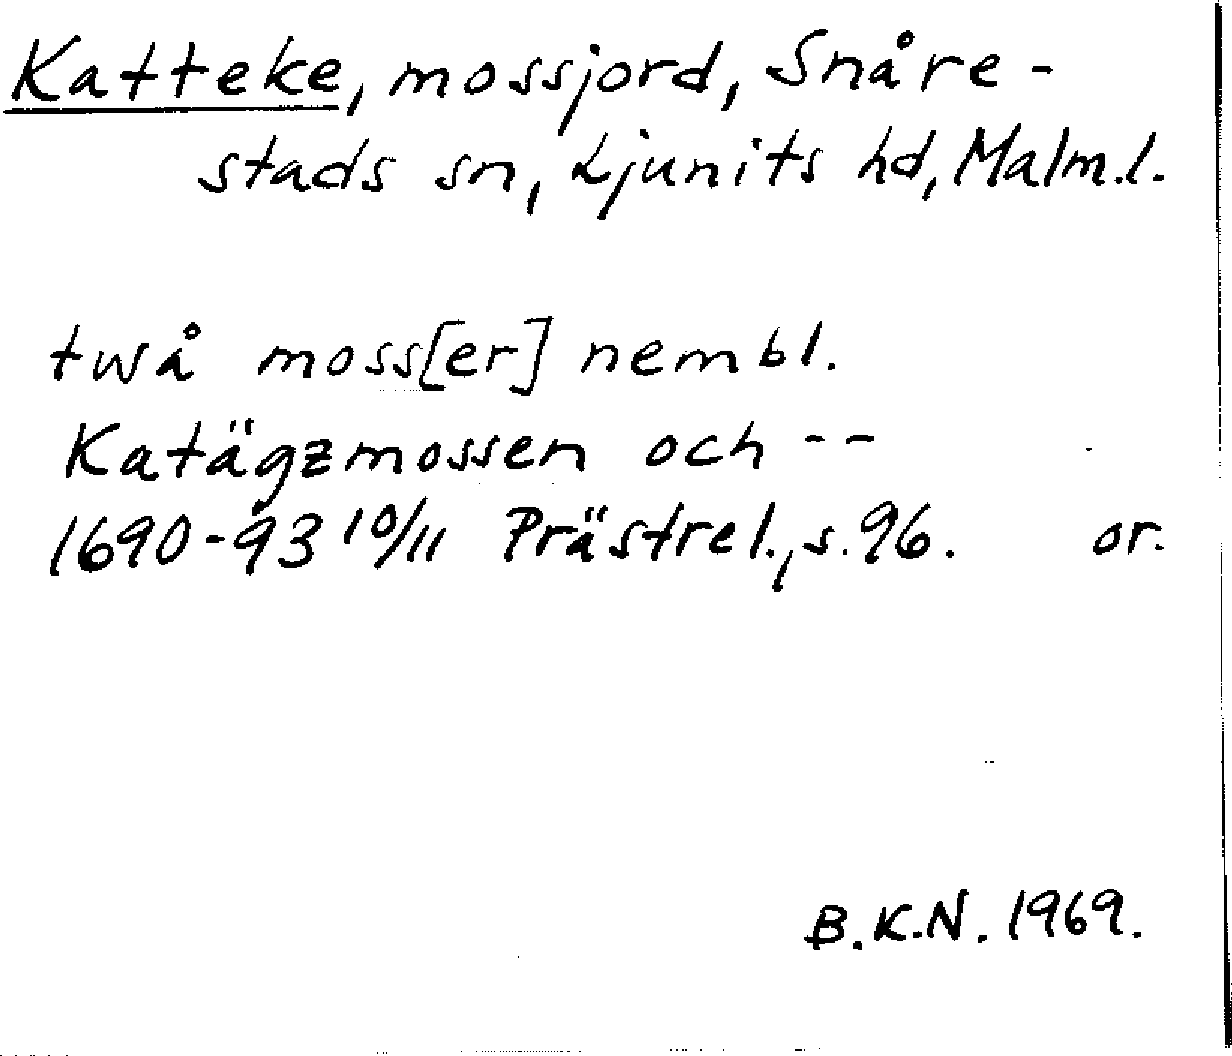 Katteke, mossjord, Snåre-
stads sn, Ljunits hd, Malm.l.
twå moss[er] nembl.
Katägzmossen och --
1690-93 10/11 Prästrel., s. 96. or.
B.K.N. 1969.